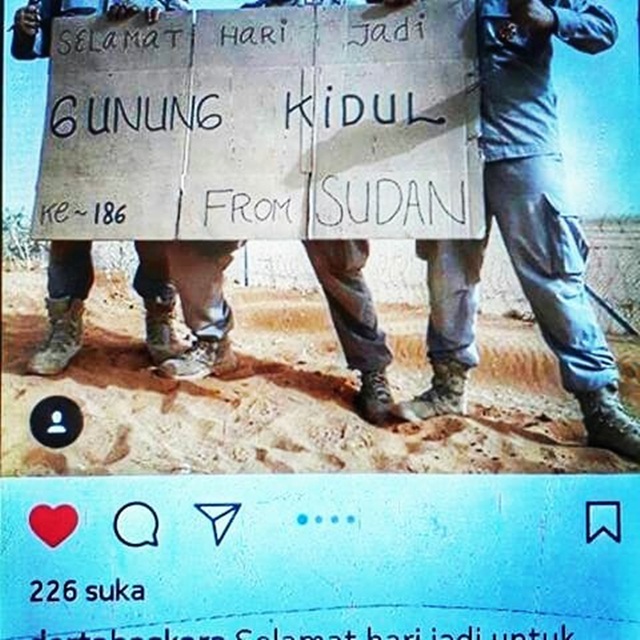 SELAMAT HARI JADi
GUNUNG KiDUL
KE~186 FROM SUDAN
226 suka
Selamat hari jadi untuk